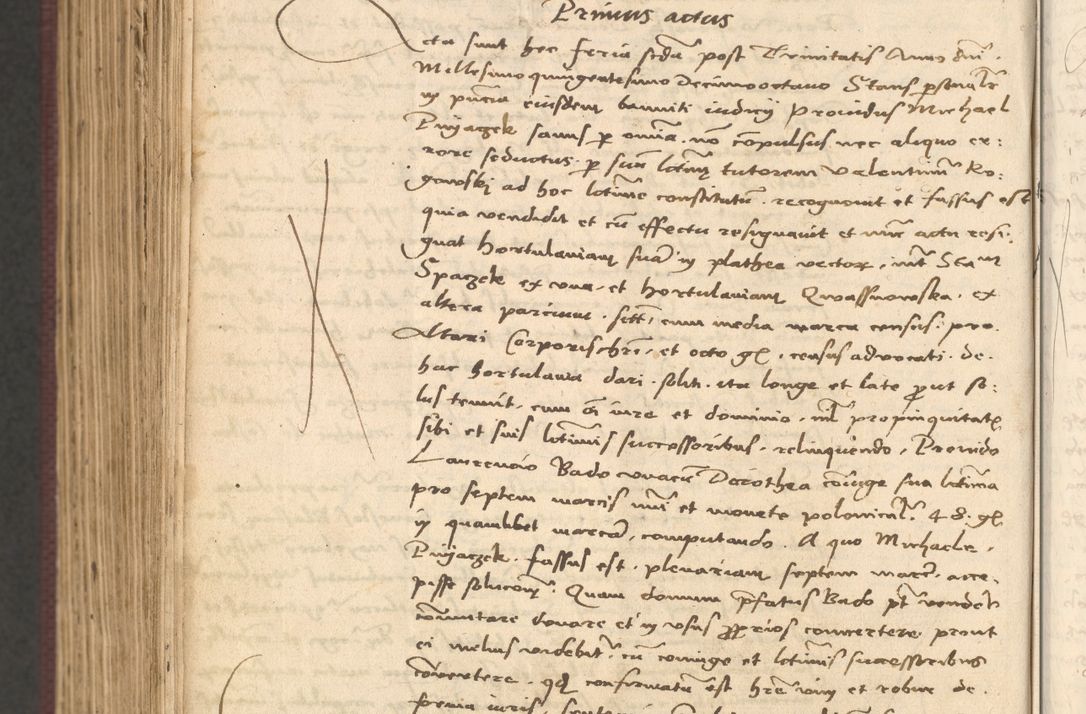 Primus actus
Acta sunt hec feria scda post Trinitatis Anno dni
Millesimo quingentesimo Decimooctavo Stans psonalr
in pncia eiusdem banniti iudicij Providus Michael
Pnijaczek sanus p omia no compulsus nec aliquo er:
rore seductus p suu lotimu tutorem Valentinu Ro:
gowskj ad hoc lotime constitutu recognovit et fassus est
quia vendidit et cu effectu resignavit et nuc actu resi:
gnat hortulaniam sua in plathea vector int Stan
Spaczek ex una et hortulaniam Qwassnowska ex
altera parcium sitt cum media marca census pro
Altari Corporischri et octo gl census advocati de
hac hortulania dari solit ita longe et late put so:
lus tenuit cum oi iure et dominio nl propinquitatis
sibi et suis lotimis successoribus relinquendo Provido
Laurencio Bado unacu Dorothea coiuge sua lotima
pro septem marcis nui et monete polonical 48 gl
in quamlibet marca computando A quo Michaele
Pnijaczek fassus est plenariam septem marc acce
pisse soluconem Quam domum pfatus Bado pt vender
comutare donare et in usus pprios convertere prout
ei melius videbit cu coniuge et lotimis successoribus
covertere qd confirmatu est hre vim et robur de